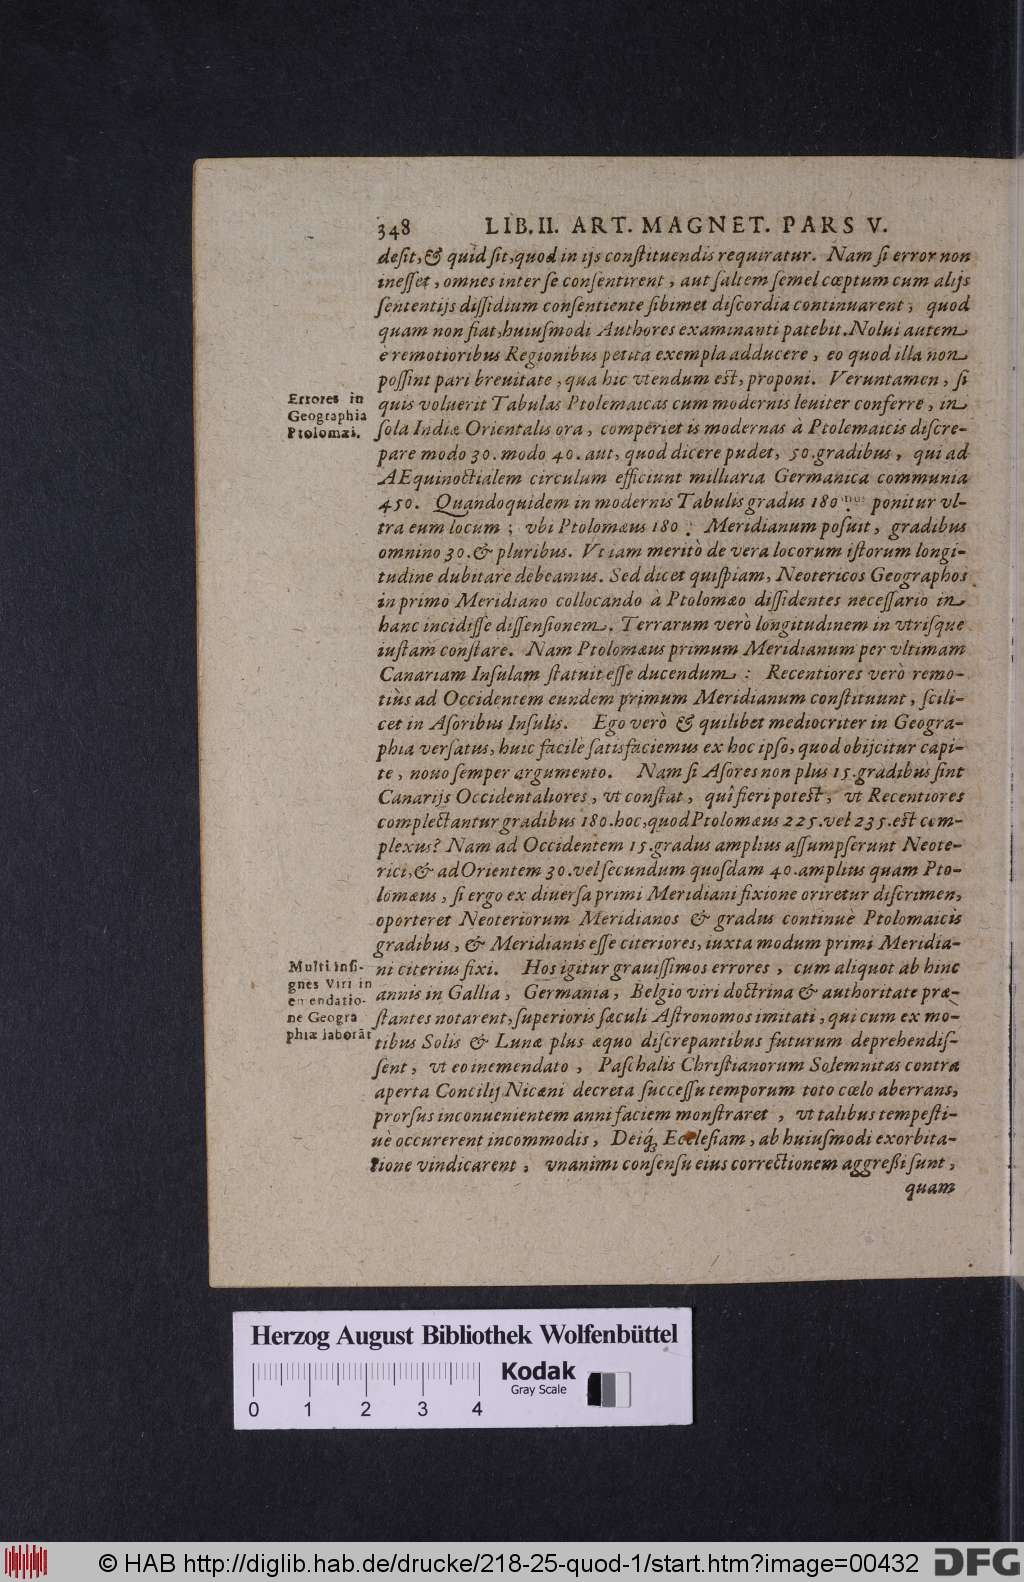 348 LIB. II. ART. MAGNET. PARS V.
desit, & quid sit, quod in ijs constituendis requiratur. Nam si error non
inesset, omnes inter se consentirent, aut saltem semel cœptum cum alijs
sententijs dissidium consentiente sibimet discordia continuarent; quod
quam non fiat, huiusmodi Authores examinanti patebit. Nolui autem
è remotioribus Regionibus petita exempla adducere, eo quod illa non
possint pari breuitate, qua hic vtendum est, proponi. Veruntamen, si
Errores in
Geographia
Ptolomæi.
quis voluerit Tabulas Ptolemaicas cum modernis leuiter conferre, in
sola Indiæ Orientalis ora, comperiet is modernas à Ptolemaicis discre-
pare modo 30. modo 40. aut, quod dicere pudet, 50. gradibus, qui ad
AEquinoctialem circulum efficiunt milliaria Germanica communia
450. Quandoquidem in modernis Tabulis gradus 180 ponitur vl-
tra eum locum; vbi Ptolomæus 180 : Meridianum posuit, gradibus
omnino 30. & pluribus. Vt iam meritò de vera locorum istorum longi-
tudine dubitare debeamus. Sed dicet quispiam, Neotericos Geographos
in primo Meridiano collocando à Ptolomæo dissidentes necessario in
hanc incidisse dissensionem. Terrarum verò longitudinem in vtrisque
iustam constare. Nam Ptolomæus primum Meridianum per vltimam
Canariam Insulam statuit esse ducendum: Recentiores verò remo-
tiùs ad Occidentem eundem primum Meridianum constituunt, scili-
cet in Asoribus Insulis. Ego verò & quilibet mediocriter in Geogra-
phia versatus, huic facilè satisfaciemus ex hoc ipso, quod obijcitur capi-
te, nouo semper argumento. Nam si Asores non plus 15. gradibus sint
Canarijs Occidentaliores, vt constat, quî fieri potest, vt Recentiores
complectantur gradibus 180. hoc, quod Ptolomæus 225. vel 235. est com-
plexus? Nam ad Occidentem 15. gradus amplius assumpserunt Neote-
rici, & ad Orientem 30. vel secundum quosdam 40. amplius quam Pto-
lomæus, si ergo ex diuersa primi Meridiani fixione oriretur discrimen,
oporteret Neoteriorum Meridianos & gradus continuè Ptolomaicis
gradibus, & Meridianis esse citeriores, iuxta modum primi Meridia-
Multi insi-
gnes Viri in
emendatio-
ne Geogra
phiæ laborāt
ni citerius fixi. Hos igitur grauissimos errores, cum aliquot ab hinc
annis in Gallia, Germania, Belgio viri doctrina & authoritate præ-
stantes notarent, superioris sæculi Astronomos imitati, qui cum ex mo-
tibus Solis & Lunæ plus æquo discrepantibus futurum deprehendis-
sent, vt eo inemendato, Paschalis Christianorum Solemnitas contra
aperta Concilij Nicæni decreta successu temporum toto cœlo aberrans,
prorsus inconuenientem anni faciem monstraret, vt talibus tempesti-
uè occurerent incommodis, Deiq́; Ecclesiam, ab huiusmodi exorbita-
tione vindicarent, vnanimi consensu eius correctionem aggressi sunt,
quam
Herzog August Bibliothek Wolfenbüttel
Kodak
Gray Scale
0 1 2 3 4
© HAB http://diglib.hab.de/drucke/218-25-quod-1/start.htm?image=00432
DFG